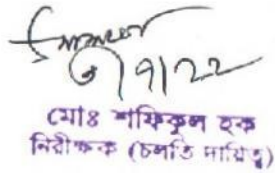 ৩/৭/২২
মোঃ শফিকুল হক
নিরীক্ষক (চলতি দায়িত্ব)